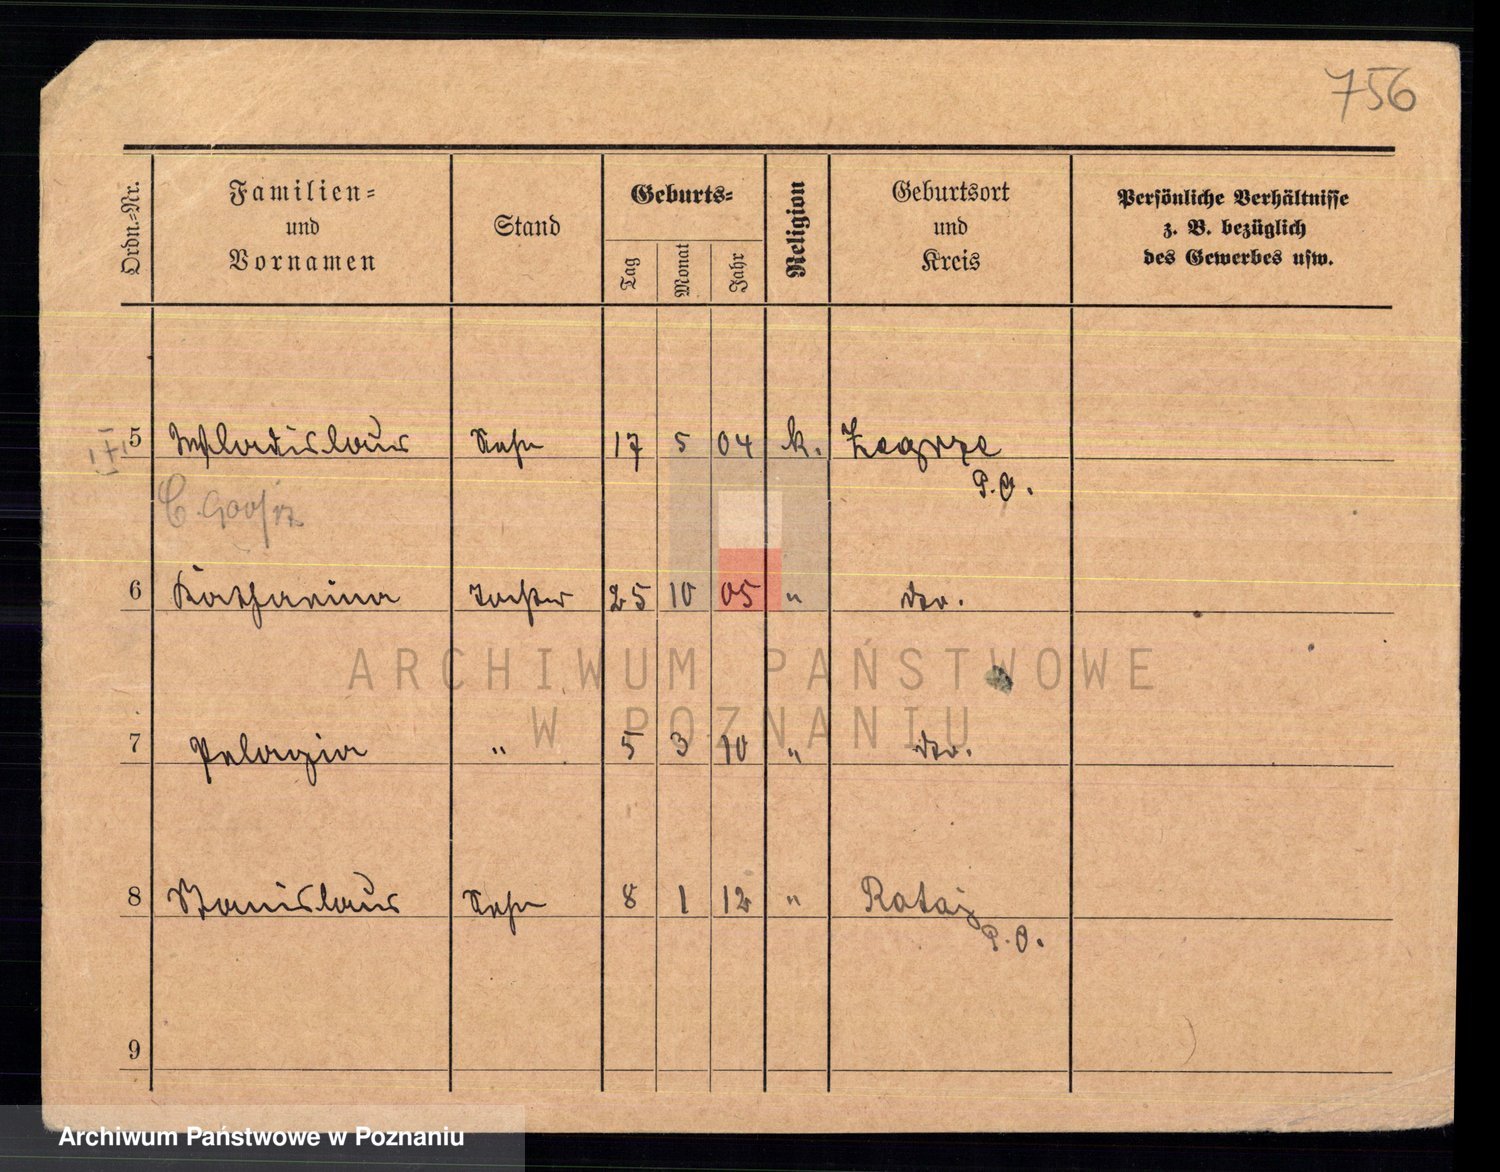 756
Ordn.-Nr.
Familien-
und
Vornamen
Stand
Geburts-
Tag
Monat
Jahr
Religion
Geburtsort
und
Kreis
Persönliche Verhältnisse
z. B. bezüglich
des Gewerbes usw.
5 Wladislaus Sohn 17 5 04 k. Zegrze
P.O.
6 Katharina Tochter 25 10 05 " do.
ARCHIWUM PAŃSTWOWE
W POZNANIU
7 Pelagia " 5 3 10 " do.
8 Stanislaus Sohn 8 1 12 " Rataj
P.O.
9
Archiwum Państwowe w Poznaniu